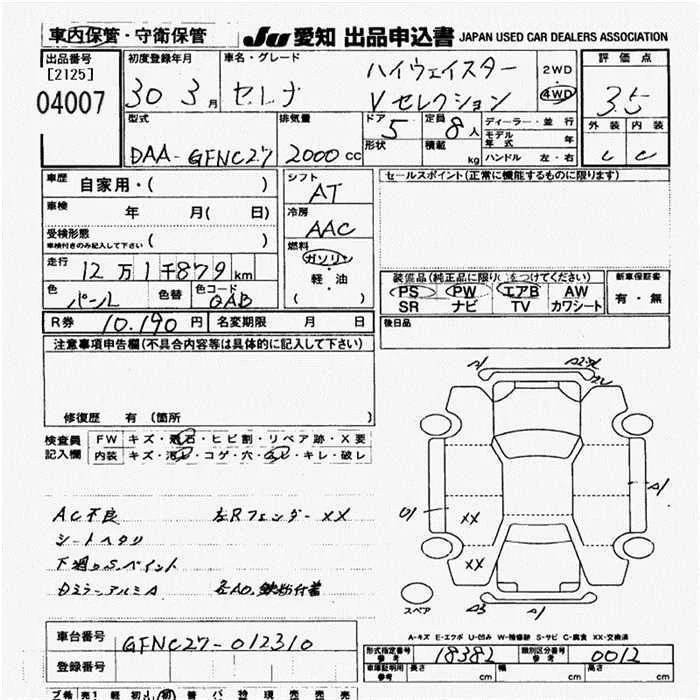 車内保管・守衛保管
JU 愛知 出品申込書 JAPAN USED CAR DEALERS ASSOCIATION
出品番号
[2125]
04007
初度登録年月
30 3月
車名・グレード
セレナ
ハイウェイスター
Vセレクション
2WD
4WD
評価点
3.5
外装 内装
C C
型式
DAA-GFNC27
排気量
2000cc
ドア 5
形状
定員 8人
積載 kg
ディーラー・並行
モデル年式 年
ハンドル 左・右
車歴 自家用・( )
車検 年 月( 日)
受検形態
車検付きのみ記入して下さい ( )
走行
12万1千879km
色 パール
色替
色コード QAB
シフト
AT
冷房
AAC
燃料
ガソリン
・
軽・油
( )
セールスポイント(正常に機能するものに限ります)
装備品(純正品に限り○をつけてください)
PS PW エアB AW
SR ナビ TV カワシート
新車保証書
有・無
R券 10,190円
名変期限 月 日
後日品
注意事項申告欄(不具合内容等は具体的に記入して下さい)
修復歴 有 (箇所 )
検査員
記入欄
FW キズ・飛石・ヒビ割・リペア跡・X要
内装 キズ・汚レ・コゲ・穴・スレ・キレ・破レ
AC不良
左Rフェンダー XX
シートヘタリ
下廻りS.ペイント
Dミラーアルミ A
各AD,鉄粉付着
A1
A2
U1
XX
A1
XX
スペア
A3
A1
A-キズ E-エクボ U-凹み W-補修跡 S-サビ C-腐食 XX-交換済
車台番号 GFNC27-012310
登録番号
形式指定番号
参考
18382
類別区分番号
参考
0012
車庫証明用
参考
長さ
幅
高さ